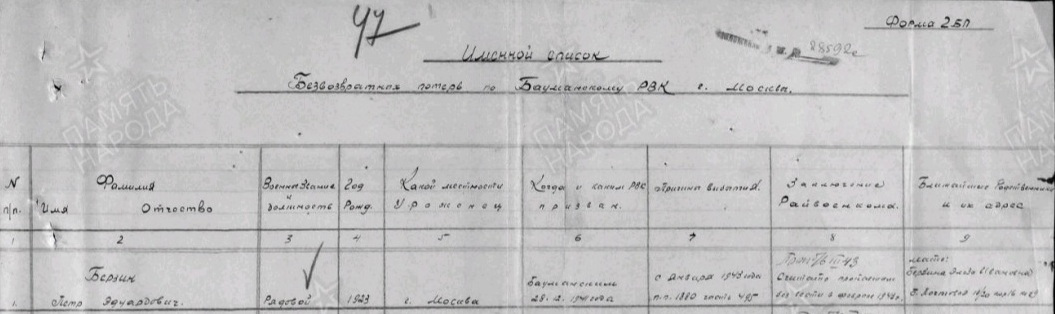 47
Форма 2БП
28592с
Именной список
Безвозвратных потерь по Бауманскому РВК г. Москва.
N п/п.
Фамилия
Имя Отчество
Военное звание и должность
Год Рожд.
Какой местности Уроженец
Когда и каким РВК призван.
Причина выбытия.
Заключение Райвоенкома.
Ближайшие Родственники и их адрес
1 2 3 4 5 6 7 8 9
1. Берзин
Петр Эдуардович.
Рядовой
1923
г. Москва
Бауманским
28.12.1941 года
с января 1943 года
п.п. 1880 часть 495
43
Считать пропавшим
без вести в феврале
мать:
Берзина Ивановна
ПАМЯТЬ НАРОДА
ПАМЯТЬ НАРОДА
ПАМЯТЬ НАРОДА